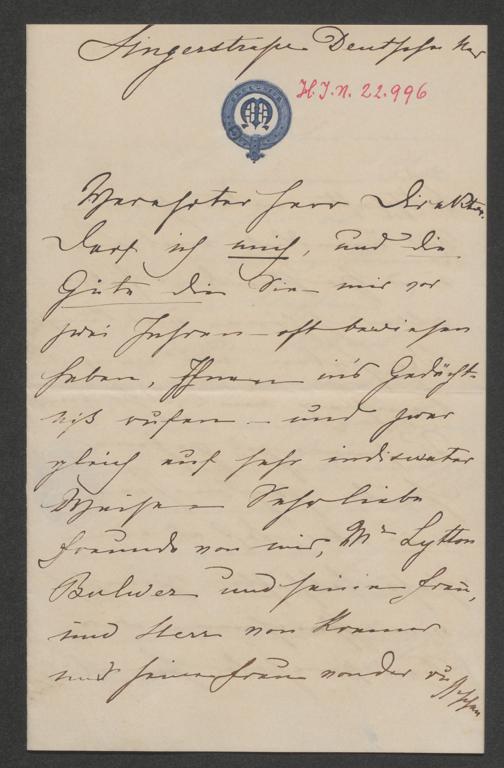 Singerstraße Deutsches
H.I.N. 22.996
Verehrter Herr Direktor.
Darf ich mich, und die
Güte die Sie mir vor
zwei Jahren oft bewiesen
haben, Ihnen in's Gedächt-
niß rufen – und zwar
gleich auf sehr indiscreter
Weise – Sehr liebe
Freunde von mir, Mr Lytton
Bulwer und seine Frau,
und Herr von Kremer
und seine Frau von der russischen